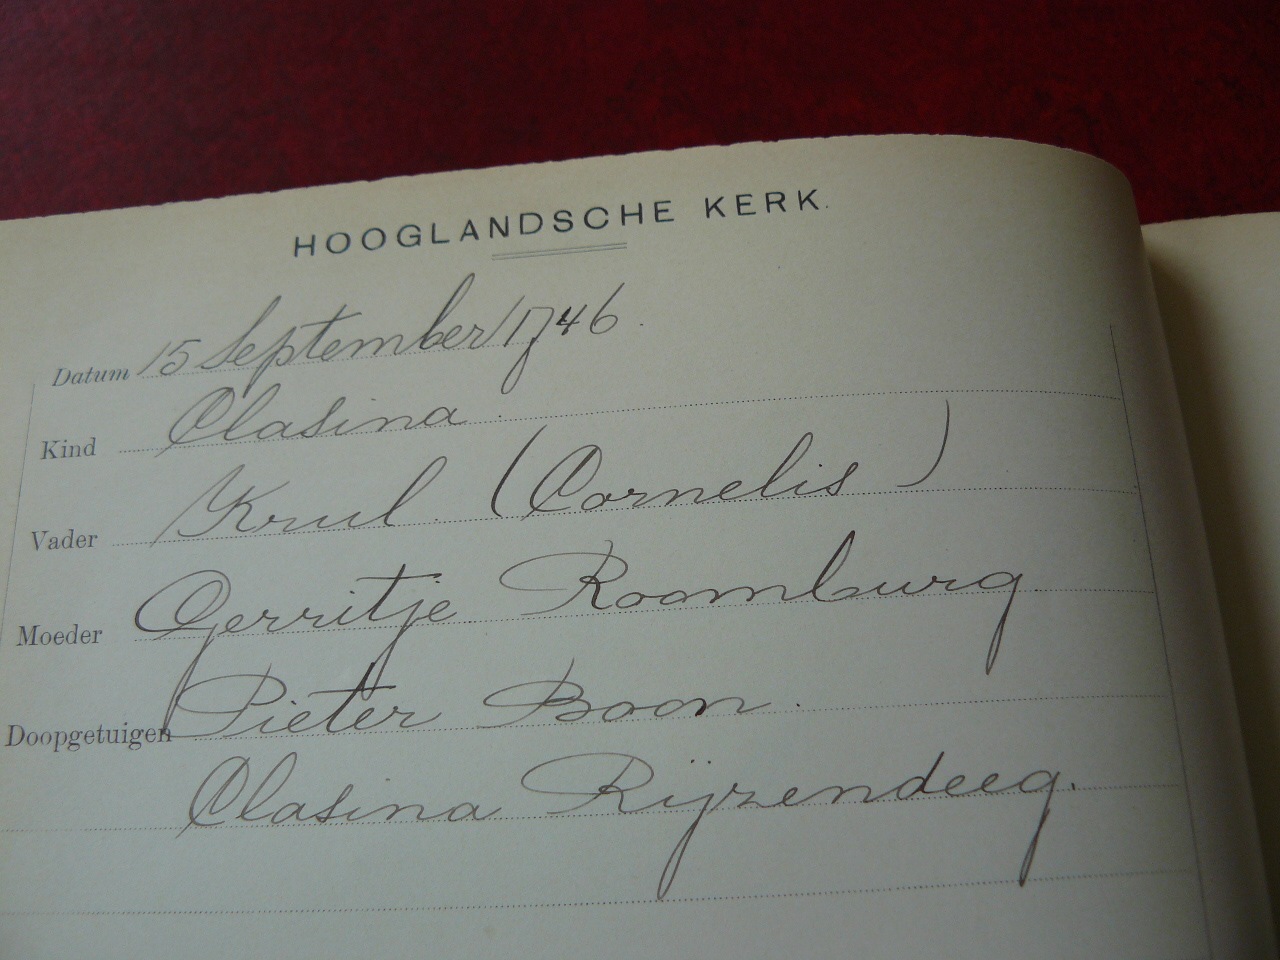 HOOGLANDSCHE KERK.
Datum 15 September 1746.
Kind Clasina
Vader Krul (Cornelis)
Moeder Gerritje Roomburg
Doopgetuigen Pieter Boon.
Clasina Rijzendeeg.